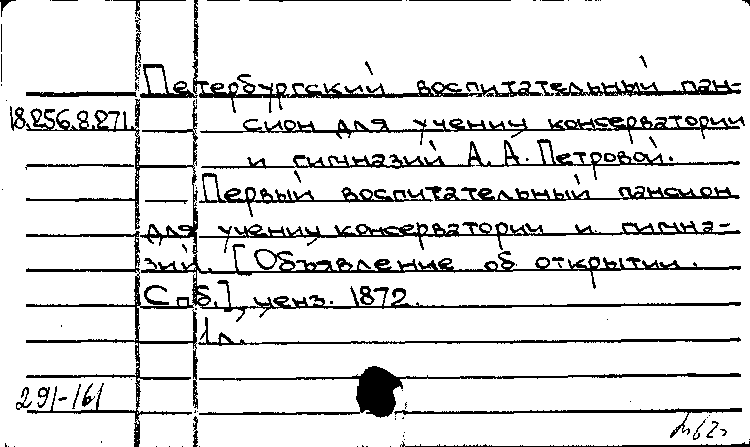 Петербургский воспитательный пан-
18.256.8.271.
сион для учениц консерватории
и гимназий А. А. Петровой.
Первый воспитательный пансион
для учениц консерватории и гимна-
зий. [Объявление об открытии.
Спб.], ценз. 1872.
1 л.
291-161